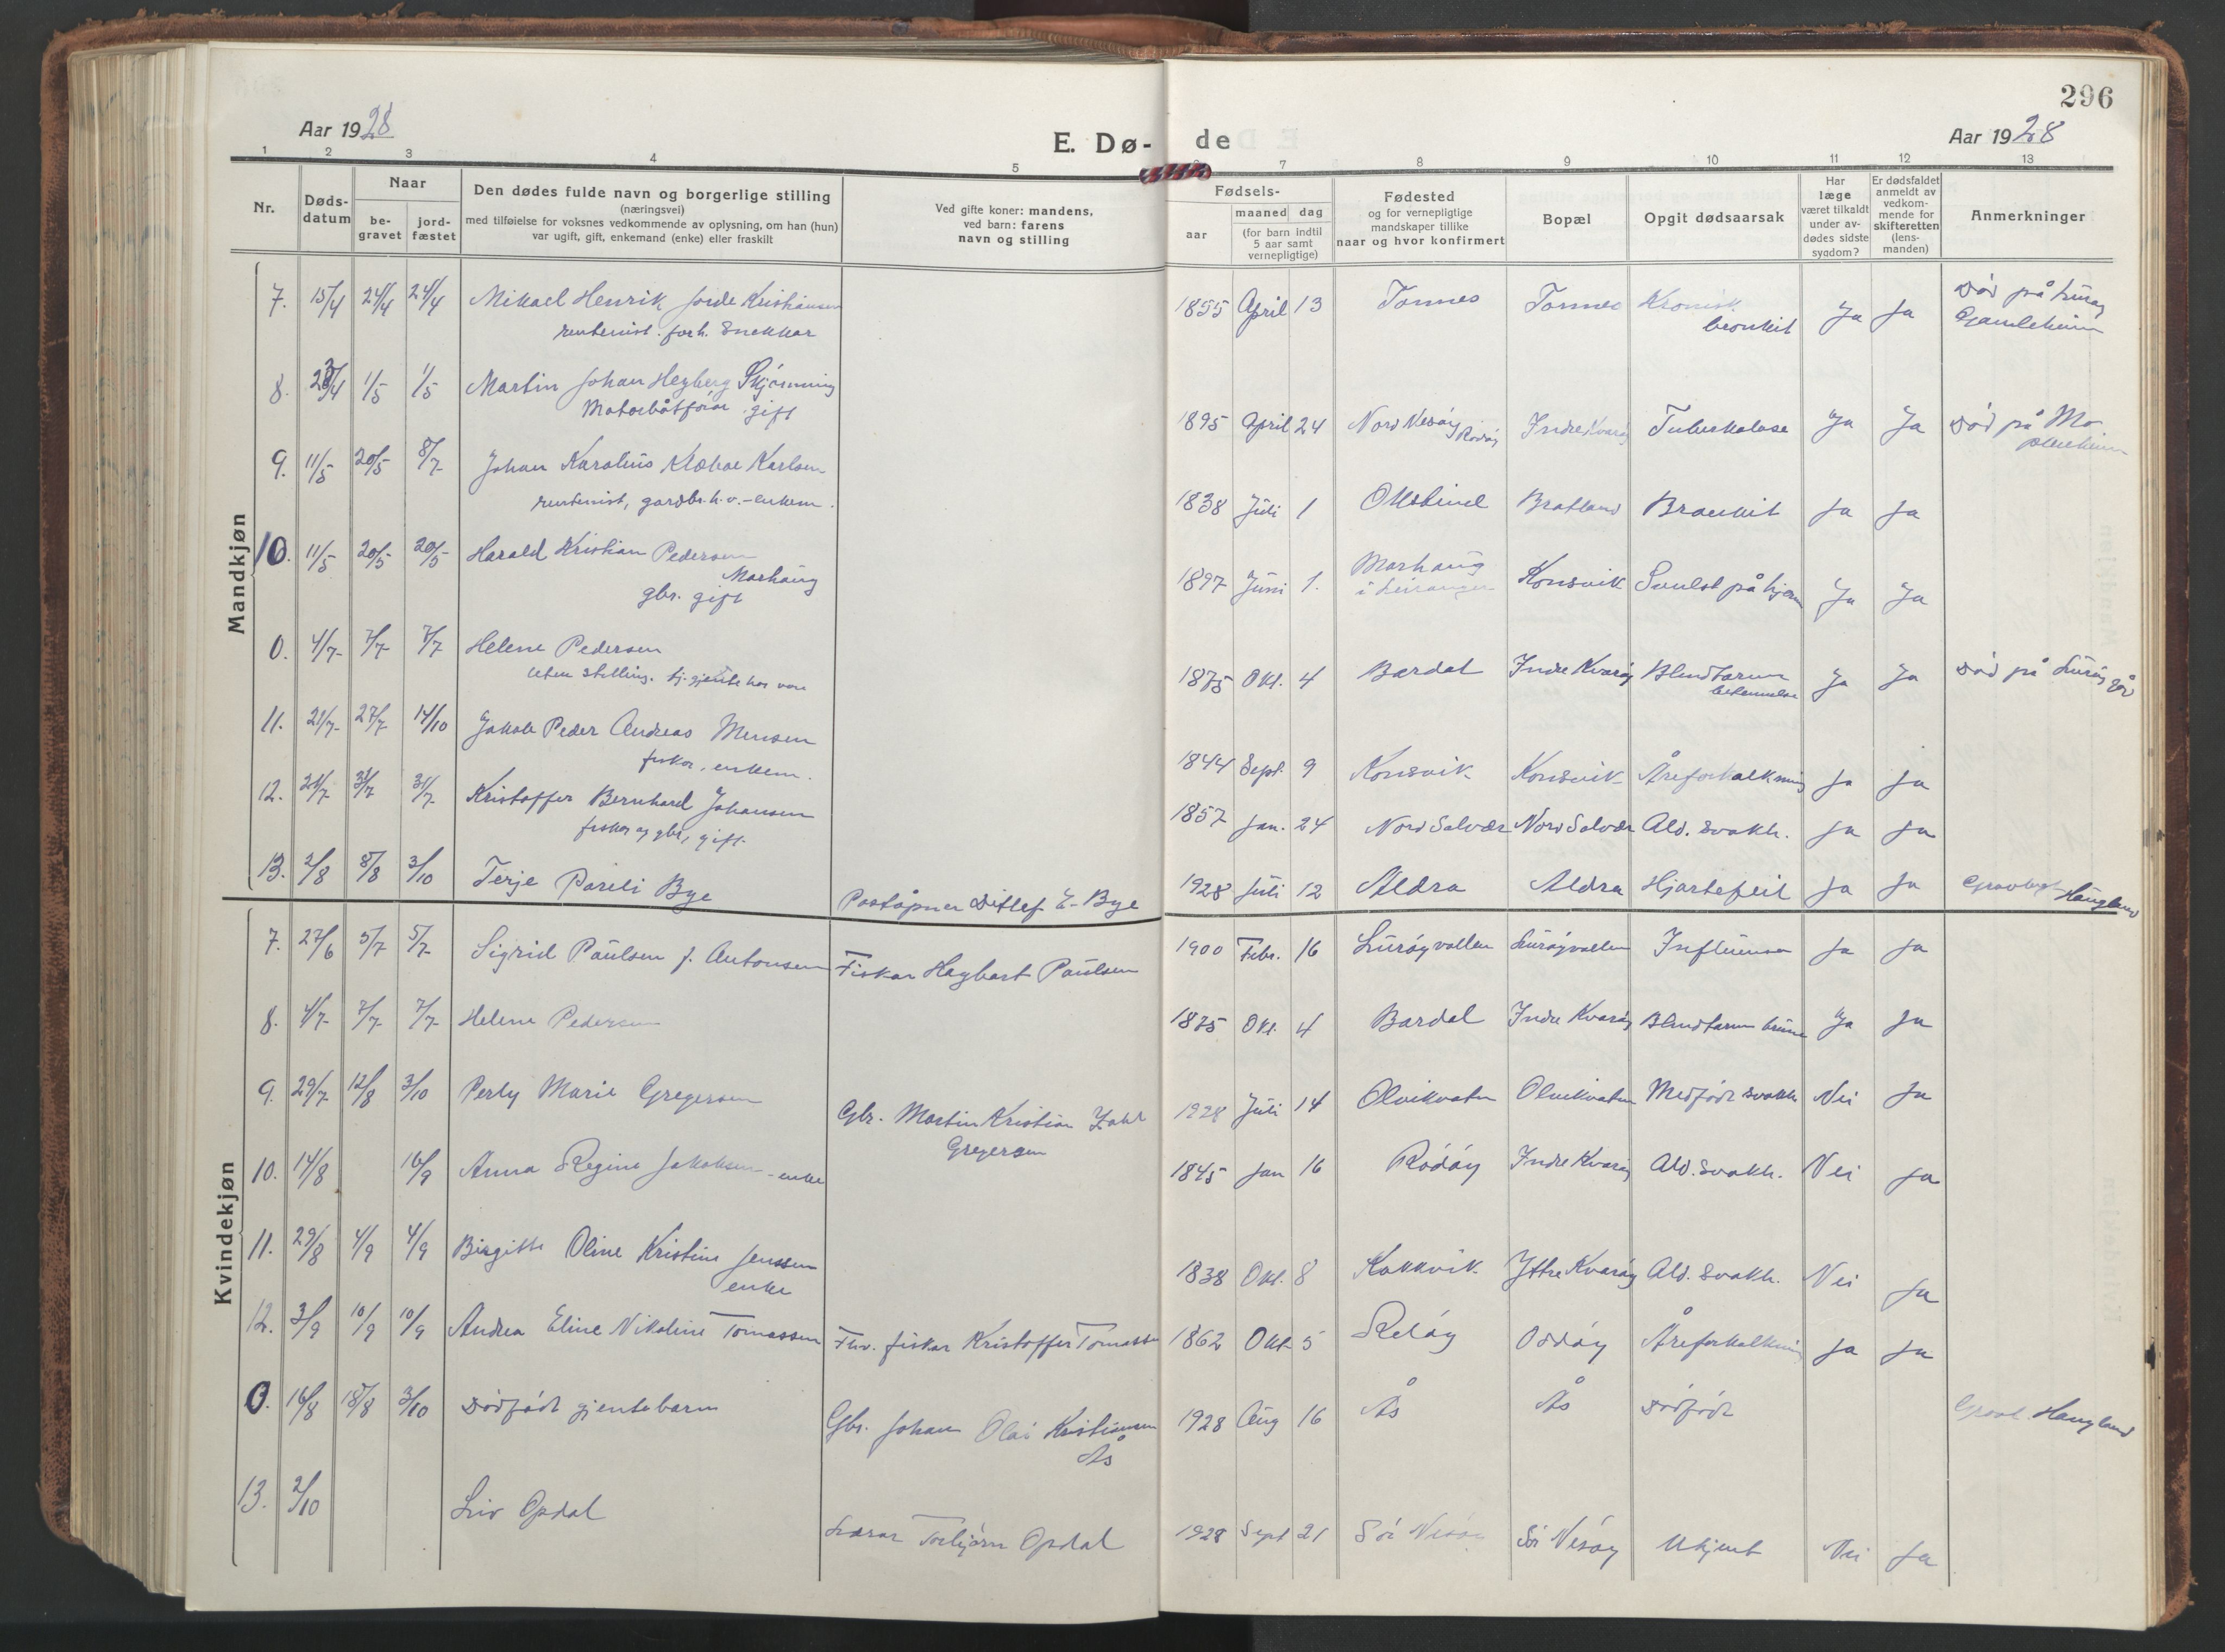 296
Aar 1928
E. Dø-
de
Aar 1928
1 2 3 4 5 6 7 8 9 10 11 12 13
Nr.
Døds-
datum
Naar
be-
gravet
jord-
fæstet
Den dødes fulde navn og borgerlige stilling
(næringsvei)
med tilføielse for voksnes vedkommende av oplysning, om han (hun)
var ugift, gift, enkemand (enke) eller fraskilt
Ved gifte koner: mandens,
ved barn: farens
navn og stilling
Fødsels-
aar
maaned dag
(for barn indtil
5 aar samt
vernepligtige)
Fødested
og for vernepligtige
mandskaper tillike
naar og hvor konfirmert
Bopæl
Opgit dødsaarsak
Har
læge
været tilkaldt
under av-
dødes sidste
sygdom?
Er dødsfaldet
anmeldt av
vedkom-
mende for
skifteretten
(lens-
manden)
Anmerkninger
Mandkjøn
7. 15/4 24/4 24/4 Mikael Henrik Jorde Kristiansen 1855 April 13 Tonnes Tonnes Kronisk bronkit Ja Ja Død på Lurøy Gamleheim
rentenist. forh. Snekkar
8. 1/5 1/5 Martin Johan Heyberg Skjønning 1895 April 24 Nord Nesøy Rødøy Indre Kvarøy Tuberkolose Ja Ja Død på
Motorbåtførar. gift
9. 11/5 20/5 8/7 Johan Karolius Karlsen 1838 Juli 1 Bratland Bronkit Ja Ja
rentenist, gardbr. h. v. - enkem.
10. 11/5 20/5 20/5 Harald Kristian Pedersen Marhaug 1897 Juni 1. Marhaug i Konsvik Svulst på hjern Ja Ja
gbr. gift
0. 4/7 7/7 7/7 Helene Pedersen 1875 Okt. 4 Bardal Indre Kvarøy Blindtarm betennelse Ja Ja Død på Lurøygård
uten stilling. tj. gjente har vore
11. 21/7 27/7 14/10 Jakob Peder Andreas Mensen 1844 Sept. 9 Konsvik Konsvik Åreforkalkning Ja Ja
fiskar, enkem.
12. 31/7 31/7 Kristoffer Bernhard Johansen 1857 Jan. 24 Nord Solvær Nord Solvær Ald. svakh. Ja Ja
fiskar og gbr, gift
13. 2/8 8/8 3/10 Terje Pareli Bye Poståpner Ditlef E. Bye 1928 Juli 12 Aldra Aldra Hjartefeil Ja Ja Gravlagt Haugland
Kvindekjøn
7. 27/6 5/7 5/7 Sigrid Paulsen f. Antonsen Fiskar Hagbart Paulsen 1900 Febr. 16 Lurøyvollen Lurøyvollen Influensa Ja Ja
8. 4/7 7/7 7/7 Helene Pedersen 1875 Okt. 4 Bardal Indre Kvarøy Blindtarm Ja Ja
9. 29/7 12/8 3/10 Perly Marie Gregersen Gbr. Martin Kristian Zahl Gregersen 1928 Juli 14 Olvikvatn Olvikvatn Medfødt svakh Nei Ja
10. 14/8 16/9 Anna Regine Jakobsen - enke 1845 Jan 16 Rødøy Indre Kvarøy Ald. Svakh. Nei Ja
11. 29/8 4/9 4/9 Birgitte Oline Kristine Jenssen 1838 Okt. 8 Kokkvik Yttre Kvarøy Ald. Svakh. Nei Ja
enke
12. 3/9 10/9 10/9 Andrea Eline Nikoline Tomassen Fhv. fiskar Kristoffer Tomassen 1862 Okt 5 Seløy Oddøy Åreforkalkning Ja Ja
0. 16/8 18/8 3/10 Dødfødt gjentebarn Gbr. Johan Olai Kristiansen Ås 1928 Aug 16 Ås Ås Dødfødt Gravl. Haugland
13. 2/10 Liv Opdal Lærar Torbjørn Opdal 1928 Sept 21 Sør Nesøy Sør Nesøy Ukjent Nei Ja